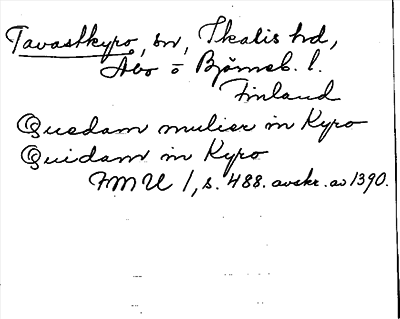 Tavastkyro, sn, Ikalis hd,
Åbo o Björneb. l.
Finland
Quedam mulier in Kyro
Quidam in Kyro
FMU 1, s. 488. avskr. av 1390.